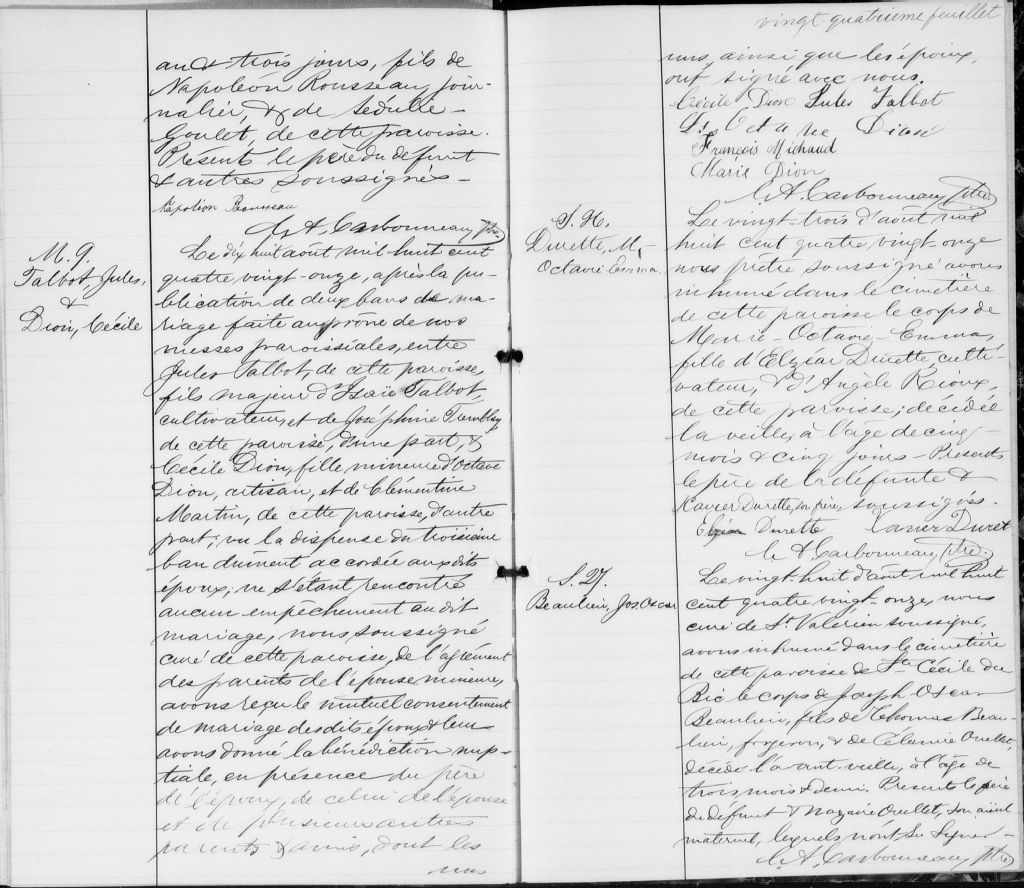 an & trois jours, fils de
Napoléon Rousseau, jour-
nalier, & de Sédulie
Goulet, de cette paroisse.
Présents le père du défunt
& autres soussignés -
Napoléon Rousseau
A. Carbonneau, Ptre
M. 9.
Talbot, Jules,
&
Dion, Cécile
Le dix huit août mil huit cent
quatre vingt-onze, après la pu-
blication de deux bans de ma-
riage faite au prône de nos
messes paroissiales, entre
Jules Talbot, de cette paroisse,
fils majeur d'Isaïe Talbot,
cultivateur, et de Joséphine Tremblay
de cette paroisse, d'une part, &
Cécile Dion, fille mineure d'Octave
Dion, artisan, et de Clémentine
Martin, de cette paroisse, d'autre
part; vu la dispense du troisième
ban dûment accordée aux dits
époux; ne s'étant rencontré
aucun empêchement au dit
mariage, nous soussigné
curé de cette paroisse, de l'agrément
des parents de l'épouse mineure,
avons reçu le mutuel consentement
de mariage des dits époux & leur
avons donné la bénédiction nup-
tiale, en présence du père
de l'époux, de celui de l'épouse
et de plusieurs autres
parents & amis, dont les
uns
vingt-quatrième feuillet
uns, ainsi que les époux,
ont signé avec nous.
Cécile Dion Jules Talbot
Octave Dion
François Michaud
Marie Dion
A. Carbonneau, Ptre
S. 26.
Durette, M.-
Octavie Emma.
Le vingt-trois d'août mil
huit cent quatre vingt-onze
nous prêtre soussigné avons
inhumé dans le cimetière
de cette paroisse le corps de
Marie-Octavie-Emma,
fille d'Elzéar Durette, culti-
vateur, & d'Angèle Rioux,
de cette paroisse; décédée
la veille, à l'âge de cinq
mois & cinq jours - Présents
le père de la défunte &
Xavier Durette, son frère, soussignés.
Elzéar Durette Xavier Duret
A. Carbonneau, Ptre.
S. 27.
Beaulieu, Jos Oscar
Le vingt-huit d'août mil huit
cent quatre vingt-onze, nous
curé de St. Valérien soussigné,
avons inhumé dans le cimetière
de cette paroisse de Ste Cécile du
Bic le corps de Joseph Oscar
Beaulieu, fils de Thomas Beau-
lieu, forgeron, & de Célanire Ouellet,
décédé l'avant-veille, à l'âge de
trois mois & demi. Présents le père
du défunt & Nazaire Ouellet, son aïeul
maternel, lesquels n'ont su signer -
A. Carbonneau, Ptre